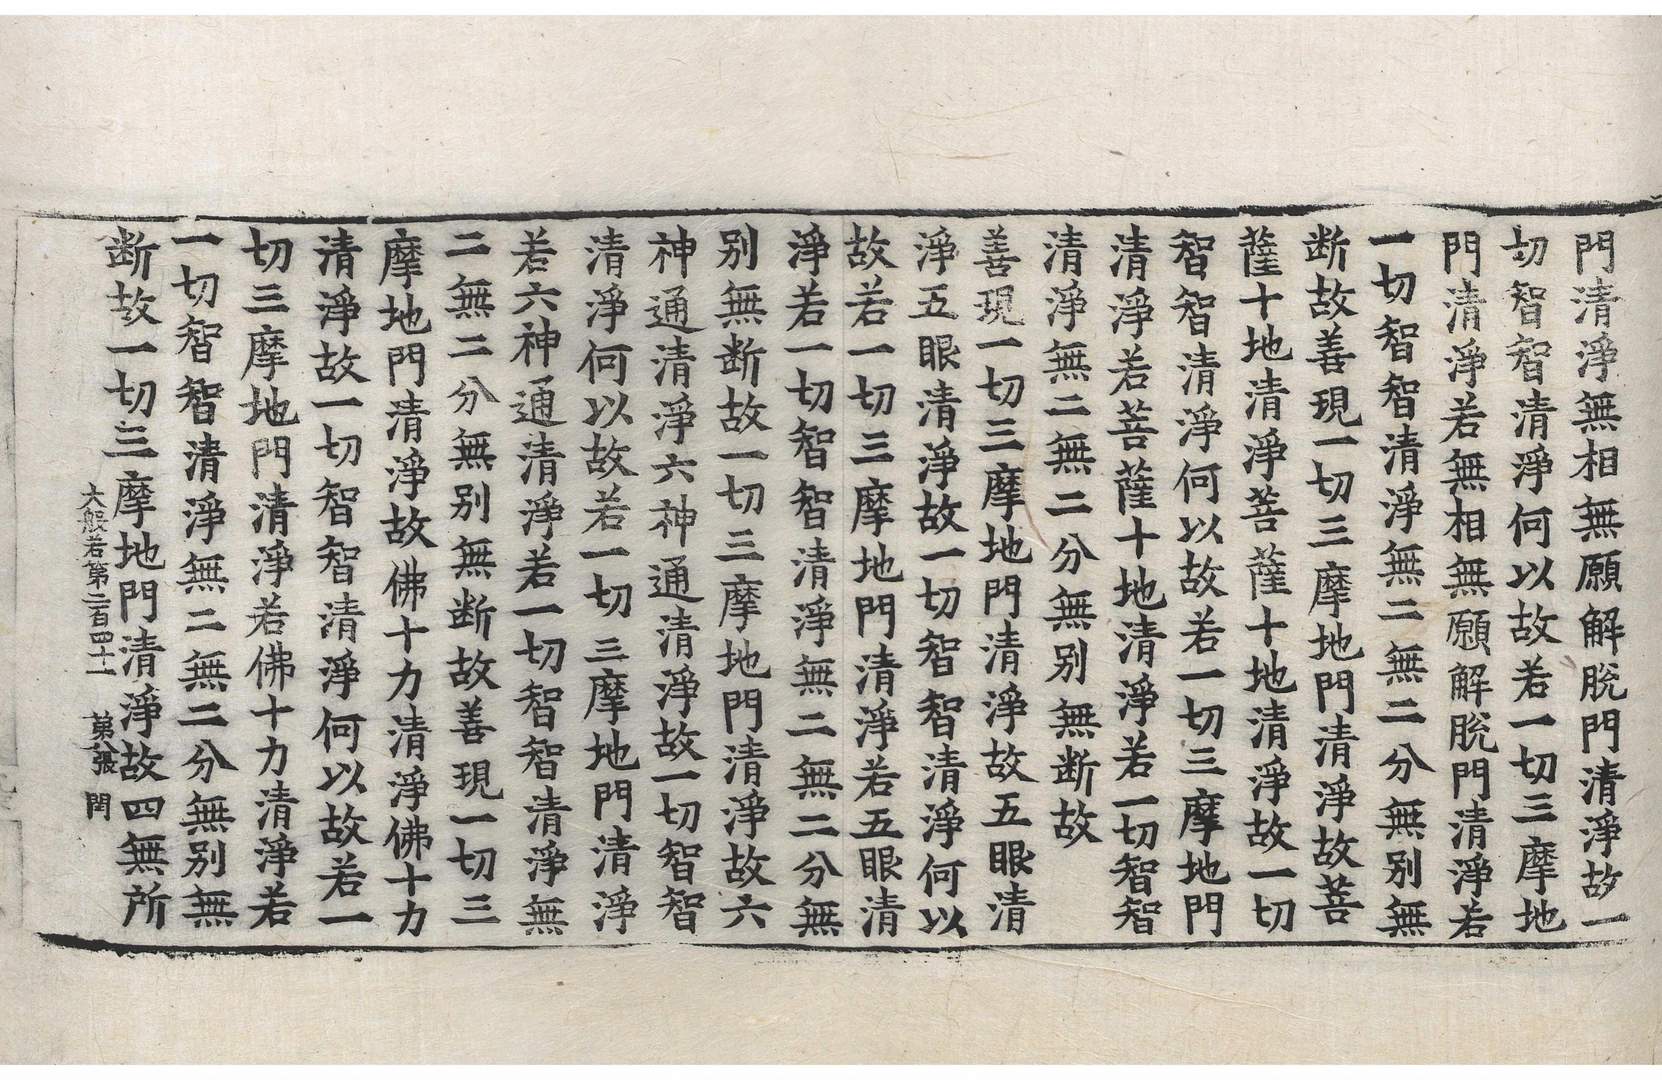 門清淨無相無願解脫門清淨故一
切智智清淨何以故若一切三摩地
門清淨若無相無願解脫門清淨若
一切智智清淨無二無二分無別無
断故善現一切三摩地門清淨故菩
薩十地清淨菩薩十地清淨故一切
智智清淨何以故若一切三摩地門
清淨若菩薩十地清淨若一切智智
清淨無二無二分無別無断故
善現一切三摩地門清淨故五眼清
淨五眼清淨故一切智智清淨何以
故若一切三摩地門清淨若五眼清
淨若一切智智清淨無二無二分無
別無断故一切三摩地門清淨故六
神通清淨六神通清淨故一切智智
清淨何以故若一切三摩地門清淨
若六神通清淨若一切智智清淨無
二無二分無別無断故善現一切三
摩地門清淨故佛十力清淨佛十力
清淨故一切智智清淨何以故若一
切三摩地門清淨若佛十力清淨若
一切智智清淨無二無二分無別無
断故一切三摩地門清淨故四無所
大般若第二百四十一　第八張　閏